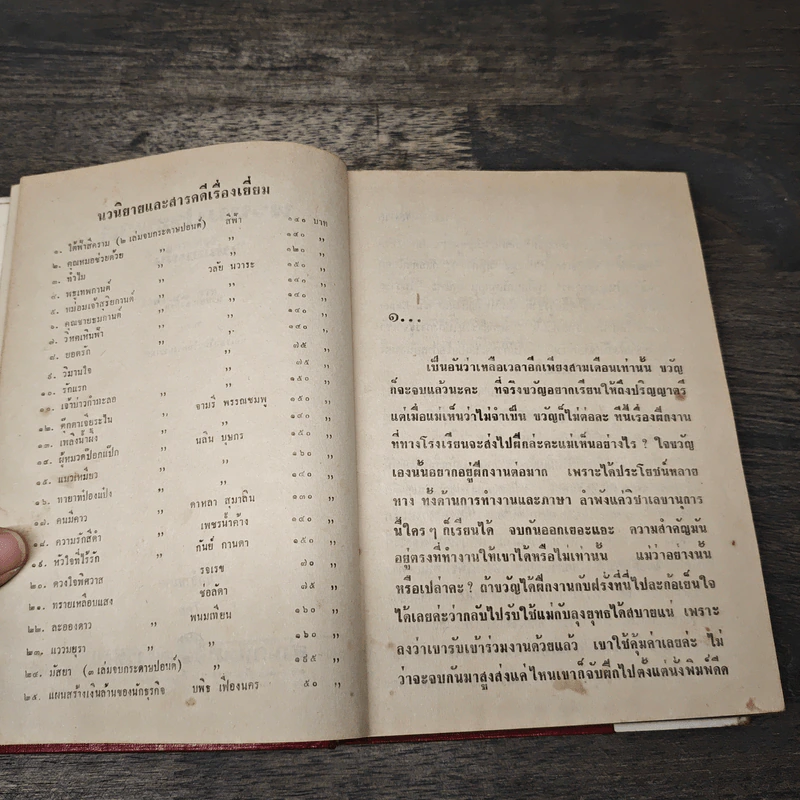 นวนิยายและสารคดีเรื่องเยี่ยม
๑. ใต้ฟ้าสีคราม (๒ เล่มจบกระดาษปอนด์) สีฟ้า ๑๔๐ บาท
๒. คุณหมอช่วยด้วย " " ๑๔๐ "
๓. ทำไม " " ๑๒๐ "
๔. พรุเทพกานต์ " วลัย นวาระ ๑๕๐ "
๕. หม่อมเจ้าสุริยกานต์ " " ๑๔๐ "
๖. คุณชายธมกานต์ " " ๑๔๐ "
๗. วิหคเหินฟ้า " " ๑๔๐ "
๘. ยอดรัก " ๗๕ "
๙. วิมานใจ " " ๗๕ "
๑๐. รักแรก " " ๑๕๐ "
๑๑. เจ้าบ่าวกำมะลอ " จามรี พรรณชมพู ๑๕๐ "
๑๒. ตุ๊กตาเจียระไน " " ๑๔๐ "
๑๓. เพลิงน้ำผึ้ง " นลิน บุษกร ๑๕๐ "
๑๔. ผู้หมวดป๊อกแป๊ก " " ๑๖๐ "
๑๕. แมวเหมียว " " ๑๔๐ "
๑๖. ทายาทป๋องแป๋ง " ดาหลา สุมาลิน ๑๓๐ "
๑๗. คนมีคาว " เพชรน้ำค้าง ๑๔๐ "
๑๘. ความรักสีดำ " กันย์ กานดา ๑๕๐ "
๑๙. หัวใจที่ไร้รัก " รจเรข ๗๐ "
๒๐. ดวงใจพิศวาส " ช่อลัดา ๗๕ "
๒๑. ทรายเหลือบแสง " พนมเทียน ๑๖๐ "
๒๒. ละอองดาว " " ๑๖๐ "
๒๓. แววมยุรา " "
๒๔. มัสยา (๓ เล่มจบกระดาษปอนด์) " ๑๙๕ "
๒๕. แผนสร้างเงินล้านของนักธุรกิจ บพิธ เฟื่องนคร ๕๐ "
๑...
เป็นอันว่าเหลือเวลาอีกเพียงสามเดือนเท่านั้น ขวัญ
ก็จะจบแล้วนะคะ ที่จริงขวัญอยากเรียนให้ถึงปริญญาตรี
แต่เมื่อแม่เห็นว่าไม่จำเป็น ขวัญก็ไม่ต่อละ ทีนี้เรื่องฝึกงาน
ที่ทางโรงเรียนจะส่งไปฝึกล่ะคะแม่เห็นอย่างไร ? ใจขวัญ
เองนั้นอยากอยู่ฝึกงานต่อมาก เพราะได้ประโยชน์หลาย
ทาง ทั้งด้านการทำงานและภาษา ลำพังแค่วิชาเลขานุการ
นี้ใคร ๆ ก็เรียนได้ จบกันออกเยอะแยะ ความสำคัญมัน
อยู่ตรงที่ทำงานให้เขาได้หรือไม่เท่านั้น แม่ว่าอย่างนั้น
หรือเปล่าคะ ? ถ้าขวัญได้ฝึกงานกับฝรั่งที่นี่ไปละก้อเย็นใจ
ได้เลยค่ะว่ากลับไปรับใช้แม่กับลุงยุทธได้สบายแน่ เพราะ
ลงว่าเขารับเข้าร่วมงานด้วยแล้ว เขาใช้คุ้มค่าเลยค่ะ ไม่
ว่าจะจบกันมาสูงส่งแค่ไหนเขาก็จับฝึกไปตั้งแต่นั่งพิมพ์ดีด